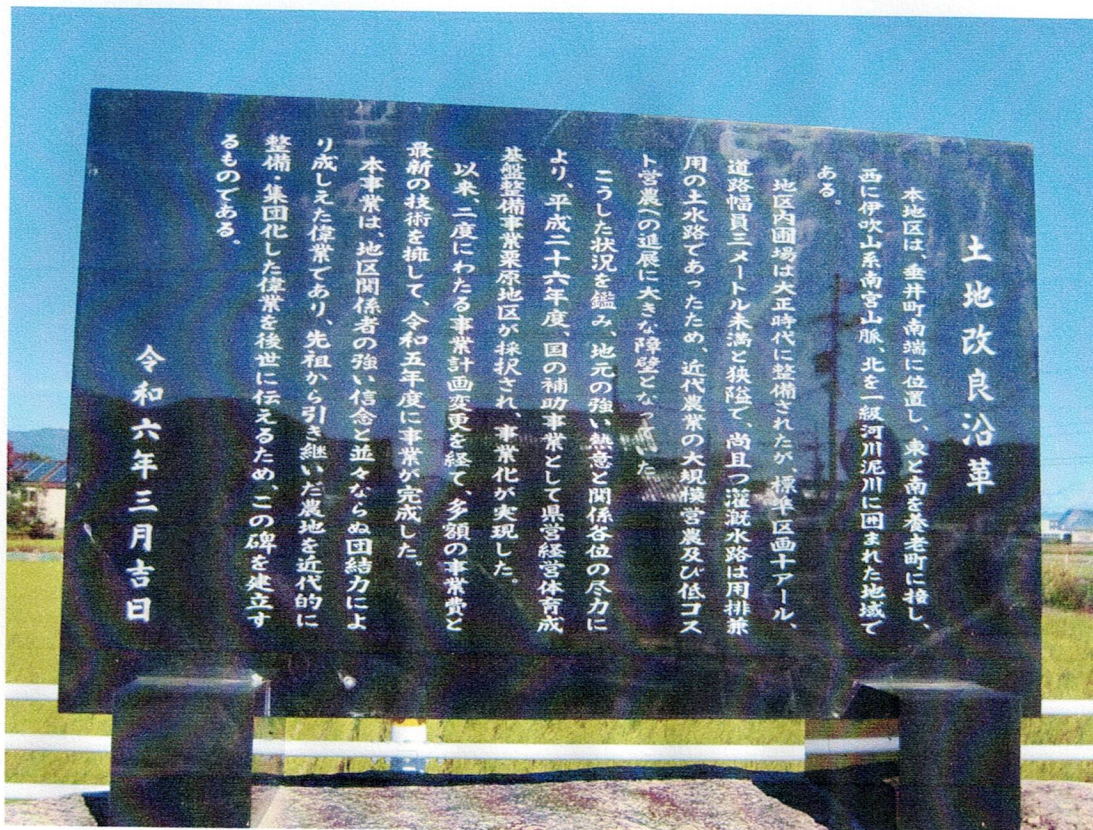 土地改良沿革
本地区は、垂井町南端に位置し、東と南を養老町に接し、
西に伊吹山系南宮山脈、北を一級河川泥川に囲まれた地域で
ある。
地区内圃場は大正時代に整備されたが、標準区画十アール、
道路幅員三メートル未満と狭隘で、尚且つ灌漑水路は用排兼
用の土水路であったため、近代農業の大規模営農及び低コス
ト営農への進展に大きな障壁となっていた。
こうした状況を鑑み、地元の強い熱意と関係各位の尽力に
より、平成二十六年度、国の補助事業として県営経営体育成
基盤整備事業栗原地区が採択され、事業化が実現した。
以来、二度にわたる事業計画変更を経て、多額の事業費と
最新の技術を擁して、令和五年度に事業が完成した。
本事業は、地区関係者の強い信念と並々ならぬ団結力によ
り成しえた偉業であり、先祖から引き継いだ農地を近代的に
整備・集団化した偉業を後世に伝えるため、この碑を建立す
るものである。
令和六年三月吉日